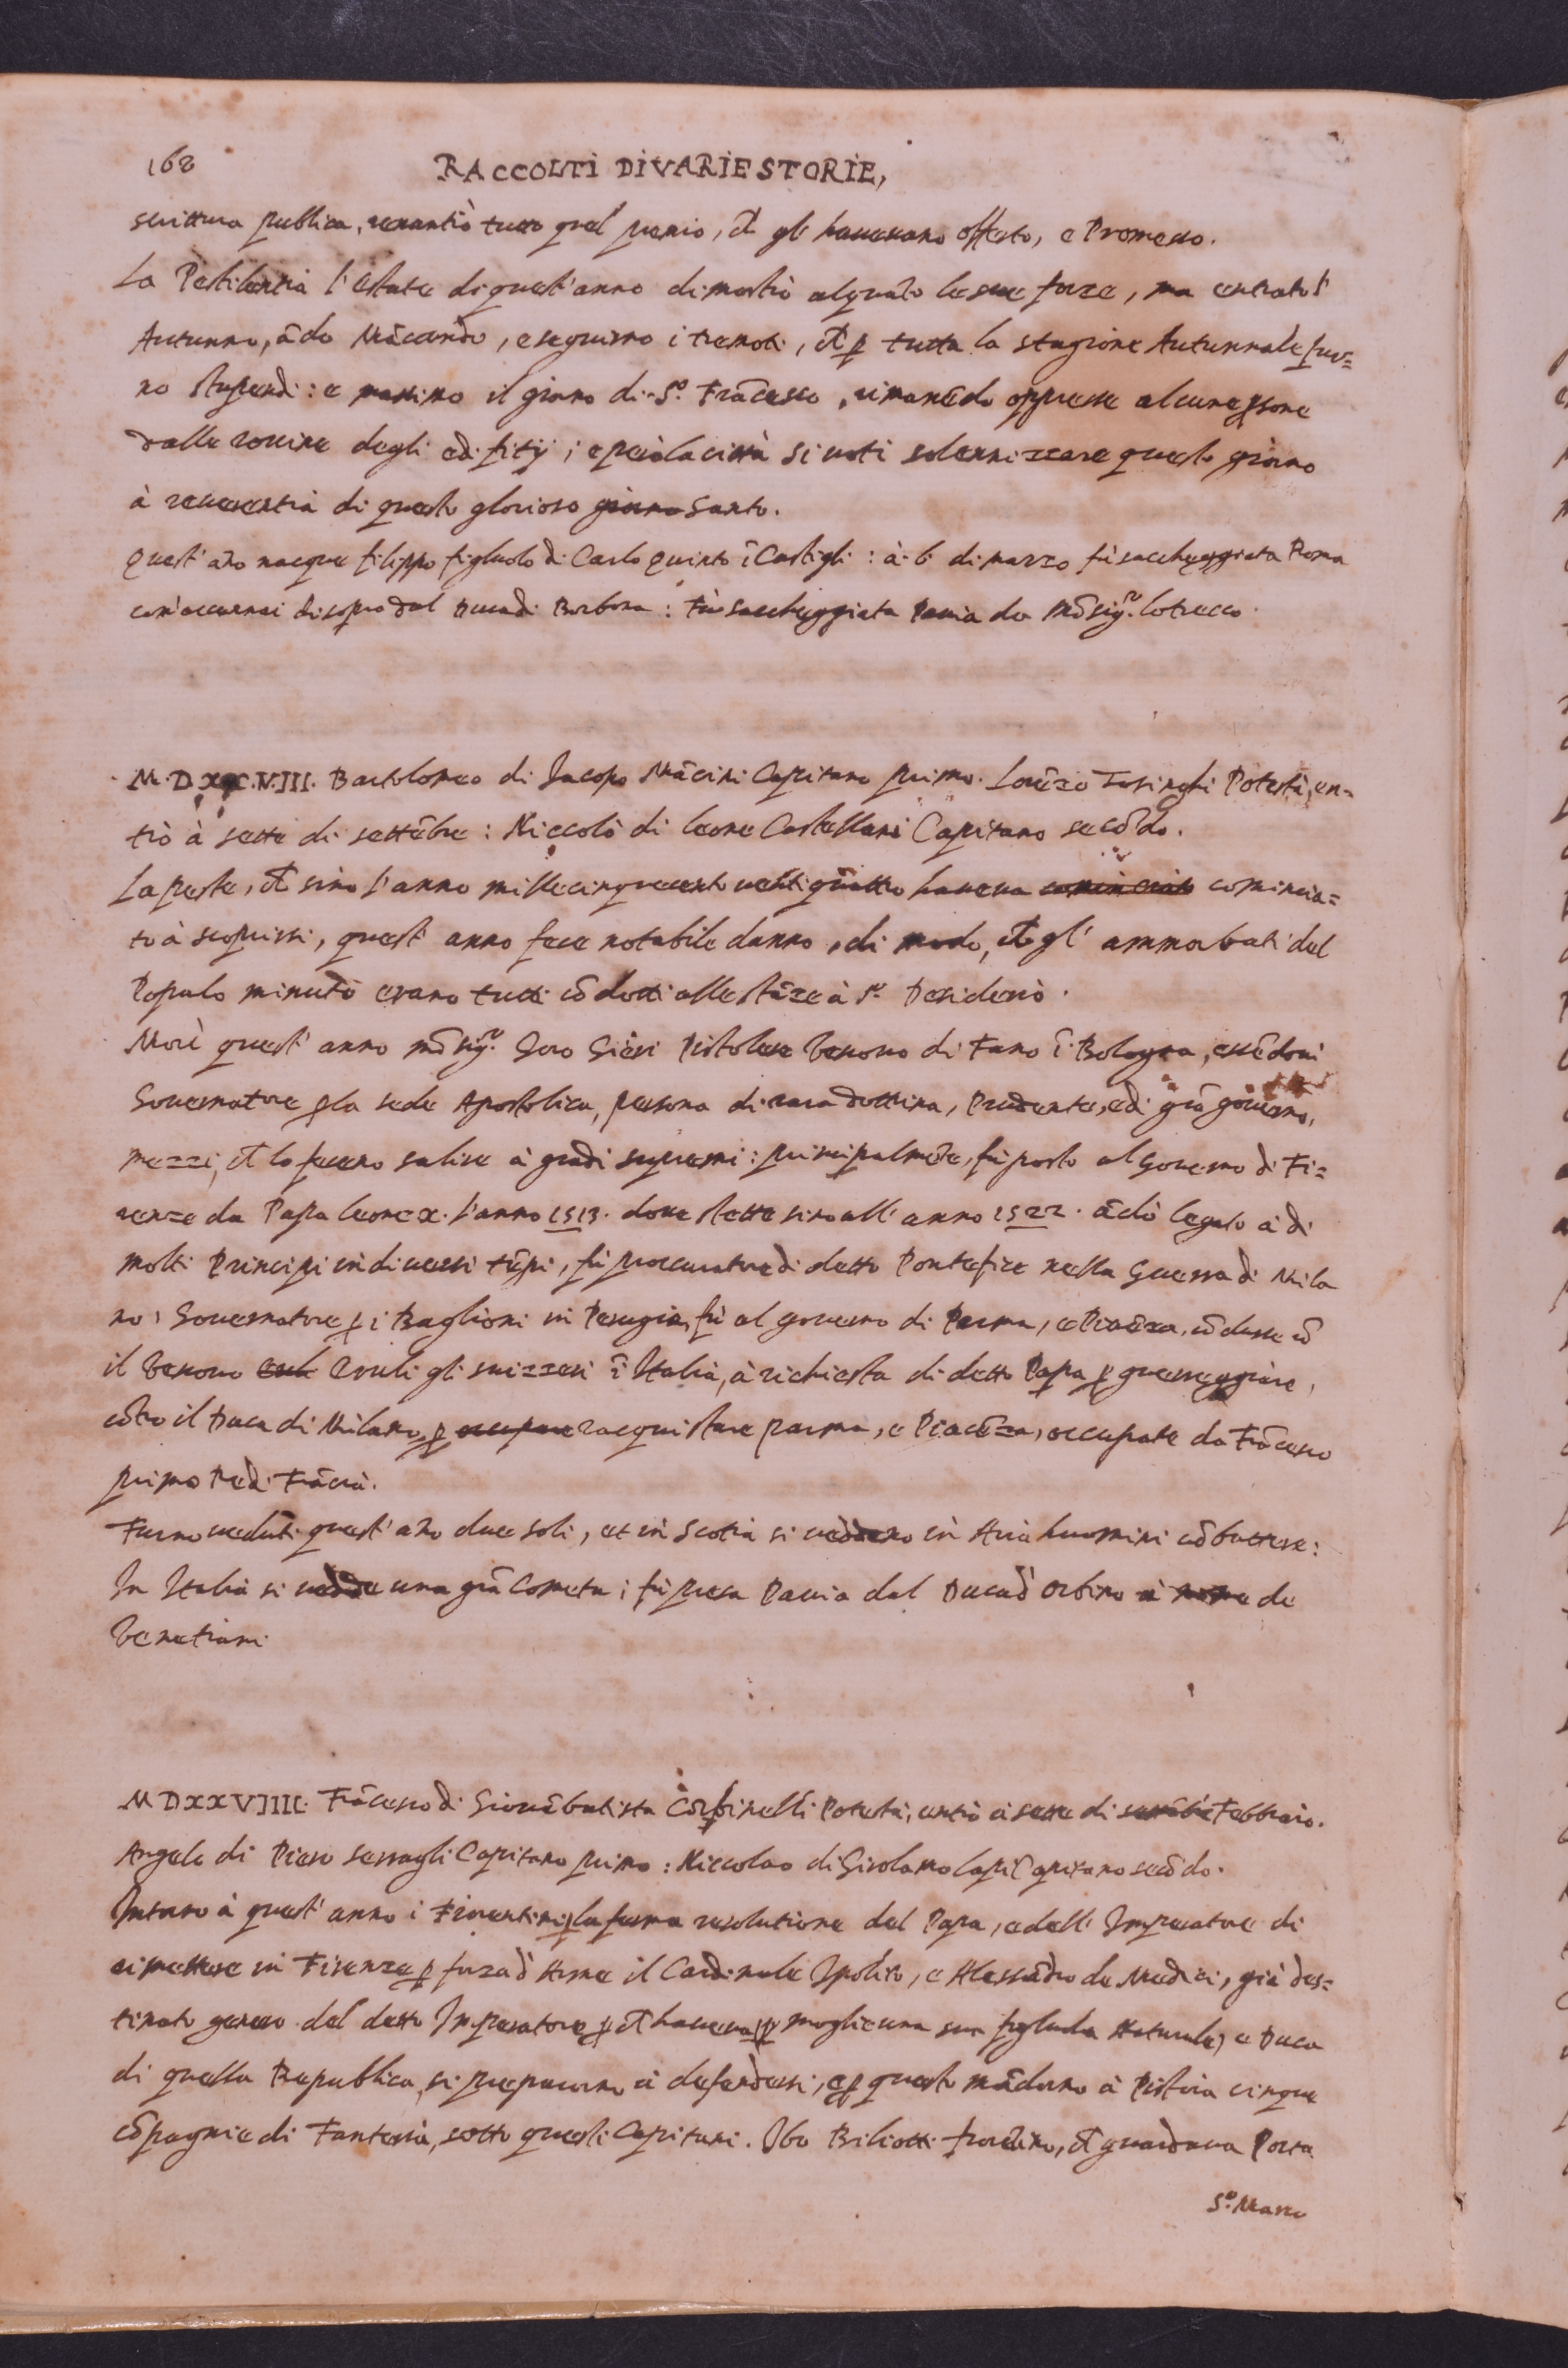 168 RACCOLTI DI VARIE STORIE,
scrittura publica, renantiò tutto quel premio, ch̃ gli haueuano offerto, e Promesso.
La Pestilentia l'estate di quest'anno dimostrò alquãto le sue forze, ma entrato l'
Autunno, ãdò Mãcando, e seguirno i tremoti, ch̃ ꝑ tutta la stagione Autunnale fur=
no stupendi: e massimo il giorno di S.º Frãcesco, rimanẽdo oppresse alcune ꝑsone
dalle rouine degli edifitij; e perciò la città si uotì solennizzare questo giorno
à reuerentia di questo glorioso giorno Santo.
Quest'ãno nacque filippo figluolo di Carlo Quinto ĩ Castigli: à 6 di marzo fù saccheggiata Roma
com'accennai di sopra dal Duca di Borbona: Fù saccheggiata Pauia da Mõsig.re Lotrecco.
M.D.XX.V.III. Bartolomeo di Iacopo Mãcini Capitano primo. Lorẽzo Tosinghi Potestà, en=
trò à sette di settẽbre: Niccolò di leone Castellani Capitano secõdo.
La peste, ch̃ sino l'anno millecinquecento uentiquattro haueua cominciato comincia=
to à scoprirsi, quest'anno fece notabile danno, di modo, ch̃ gl'ammorbati del
Populo minuto erano tutti cõdotti alle stãze à S.º Desiderio.
Morì quest'anno mõsig.re Goro Gieri Pistolese Vescouo di Fano ĩ Bologna, essẽdoui
Gouernatore ꝑ la sede Apostolica, persona di rara dottrina, Prudente, e di grã gouerno,
mezzi, ch̃ lo fecero salire à gradi supremi: principalmẽte, fù posto al Gouerno di Fi=
renze da Papa Leone X. l'anno 1513. doue stette sino all'anno 1522. ãdò legato à di
molti Principi in diuersi tẽpi, fù proccuratore di detto Pontefice nella Guerra di Mila
no; Gouernatore ꝑ i Baglioni in Perugia, fù al gouerno di Parma, e Piacẽza, cõdusse cõ
il Vescouo Veruli gli suizzeri ĩ Italia, à richiesta di detto Papa ꝑ guerreggiare,
cõtro il Duca di Milano, ꝑ occupare racquistare parma, e Piacẽza, occupate da Frãcesco
primo Re di Frãcia.
Furno ueduti quest'ãno due soli, et in Scotia si ueddeno in Aria huomini cõbattere:
In Italia si uedde una grã Cometa; fù presa Pauia dal Duca d'Orbino à nome de
Venetiani
MDXXVIIII. Frãcesco di Giouãbatista Corbinelli Potestà, entrò à sette di settẽbre Febbraio.
Angelo di Piero Serragli Capitano primo: Niccolao di Girolamo Lapi Capitano secõdo.
Intorno à quest'anno i Fiorentini ꝑ la ferma resolutione del Papa, e dell'Imperatore di
rimettere in Firenze ꝑ forza d'Arme il Cardinale Ipolito, e Alessãdro de Medici, già des=
tinato genero del detto Imperatore ꝑ ch̃ haueua ꝑ moglie una sua figluola Naturale, e Duca
di quella Republica, si preparorno à defendersi, e ꝑ questo mãdorno à Pistoia cinque
cõpagnie di Fanteria, sotto questi Capitani. Ibo Biliotti fiorẽtino, ch̃ guardaua Porta
S.º Marco